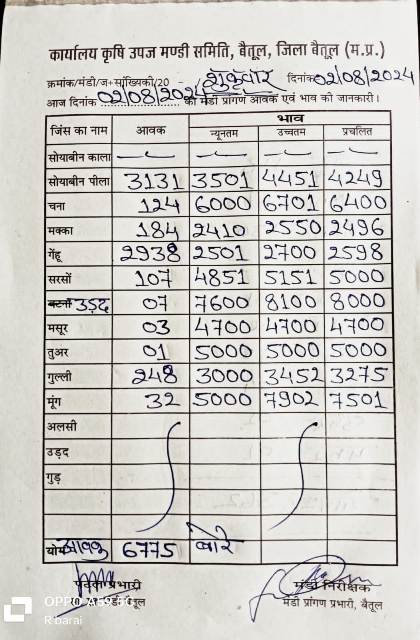 कार्यालय कृषि उपज मण्डी समिति, बैतूल, जिला बैतूल (म.प्र.)
क्रमांक/मंडी/ज+सांख्यिकी/20 - शुक्रवार दिनांक 02/08/2024
आज दिनांक 02/08/2024 को मंडी प्रांगण आवक एवं भाव की जानकारी।
जिंस का नाम आवक भाव
न्यूनतम उच्चतम प्रचलित
सोयाबीन काला — — — —
सोयाबीन पीला 3131 3501 4451 4249
चना 124 6000 6701 6400
मक्का 184 2410 2550 2496
गेंहू 2938 2501 2700 2598
सरसों 107 4851 5151 5000
उड़द 07 7600 8100 8000
मसूर 03 4700 4700 4700
तुअर 01 5000 5000 5000
गुल्ली 248 3000 3452 3275
मूंग 32 5000 7902 7501
अलसी
उड़द
गुड़
योग आवक 6775 बोरे
प्रभारी मंडी निरीक्षक
मंडी बैतूल मंडी प्रांगण प्रभारी, बैतूल
OPPO A59 5G
R barai